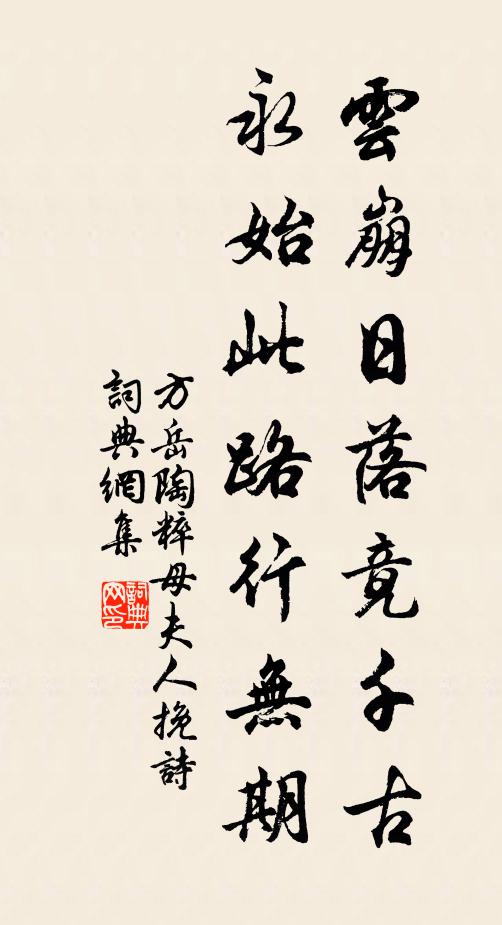 雲崩日落竟千古
永始此路行無期
方岳陶粹母夫人挽詩
詞典網集
詞典网印